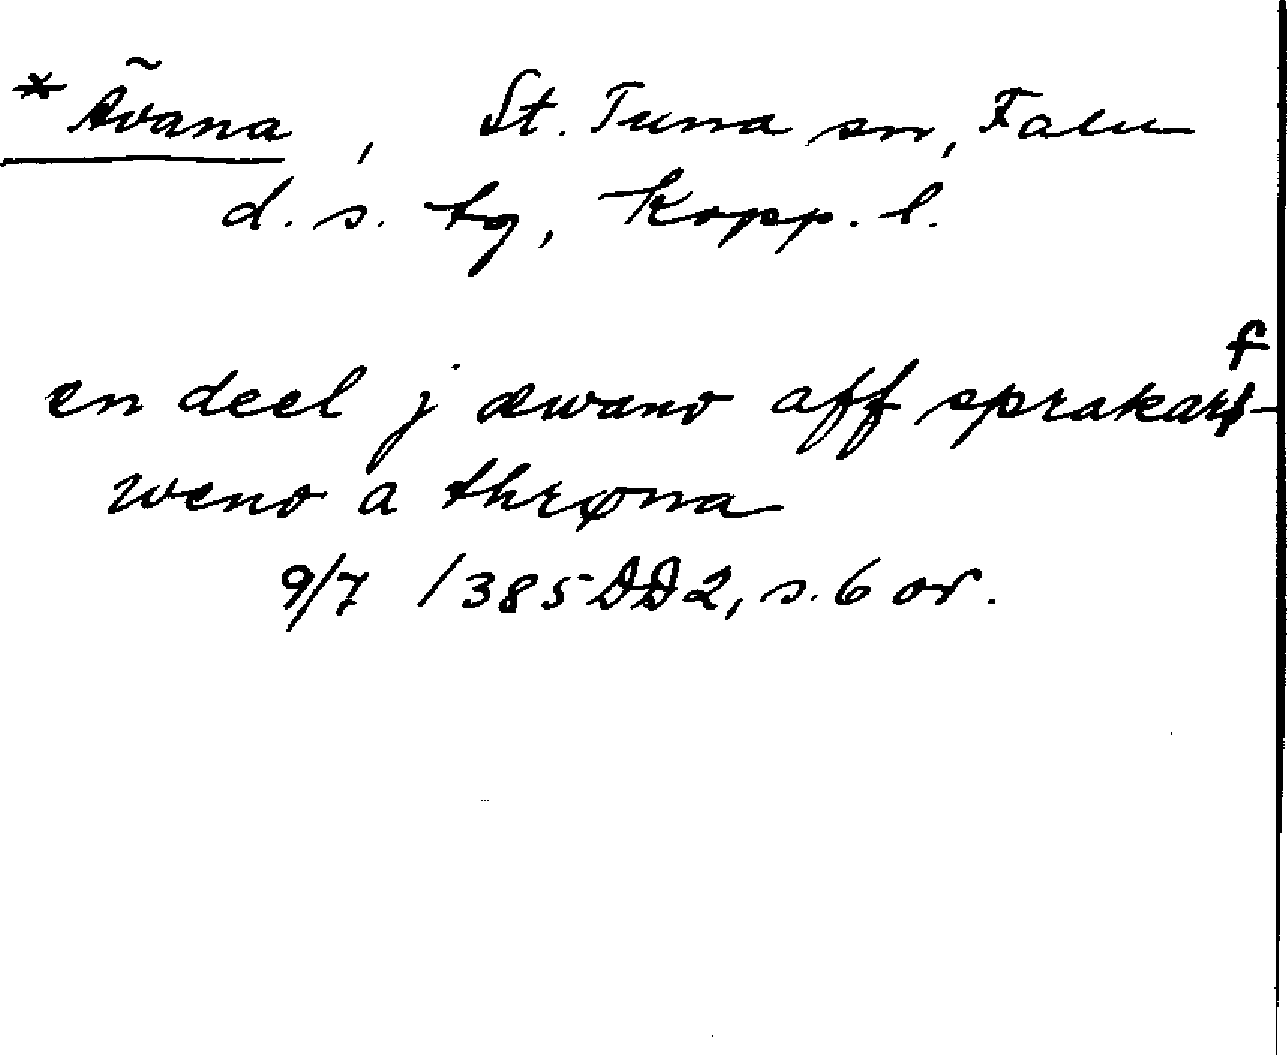 *Ävana, St. Tuna sn, Falu
d. s. tg, Kopp. l.
en deel j æwano aff sprakarf-
weno a thrøna
9/7 1385 DD2, s. 6 or.